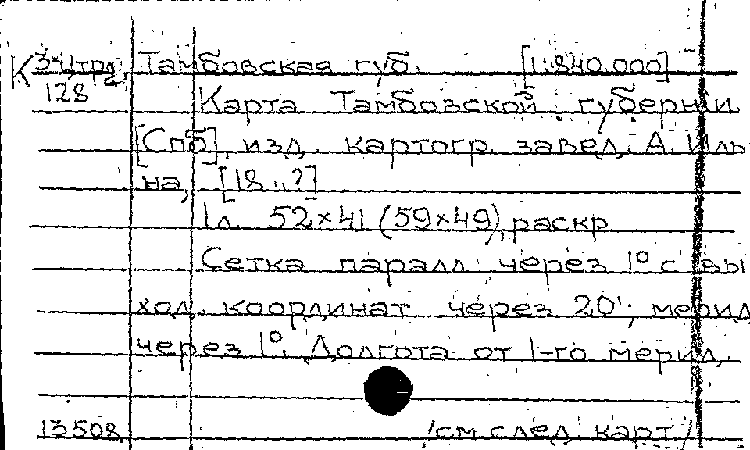 Тамбовская губ. [1:840.000]
128
Карта Тамбовской губернии
[Спб], изд. картогр. завед. А. Иль
на, [18..?]
1 л. 52×41 (59×49), раскр
Сетка паралл через 1° с вы
ход. координат через 20'; мерид
через 1°. Долгота от 1-го мерид.
13508 /см след карт/